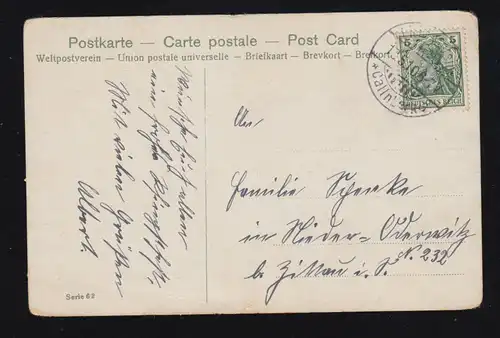 Postkarte — Carte postale — Post Card
Weltpostverein — Union postale universelle — Briefkaart — Brevkort — Brefkort
Wünsche Euch allen
ein frohes Pfingstfest,
Mit vielen Grüßen
Albert.
An
Familie Schenke
in Nieder-Oderwitz
b. Zittau i. S. N. 232
Serie 62
5 5
DEUTSCHES REICH